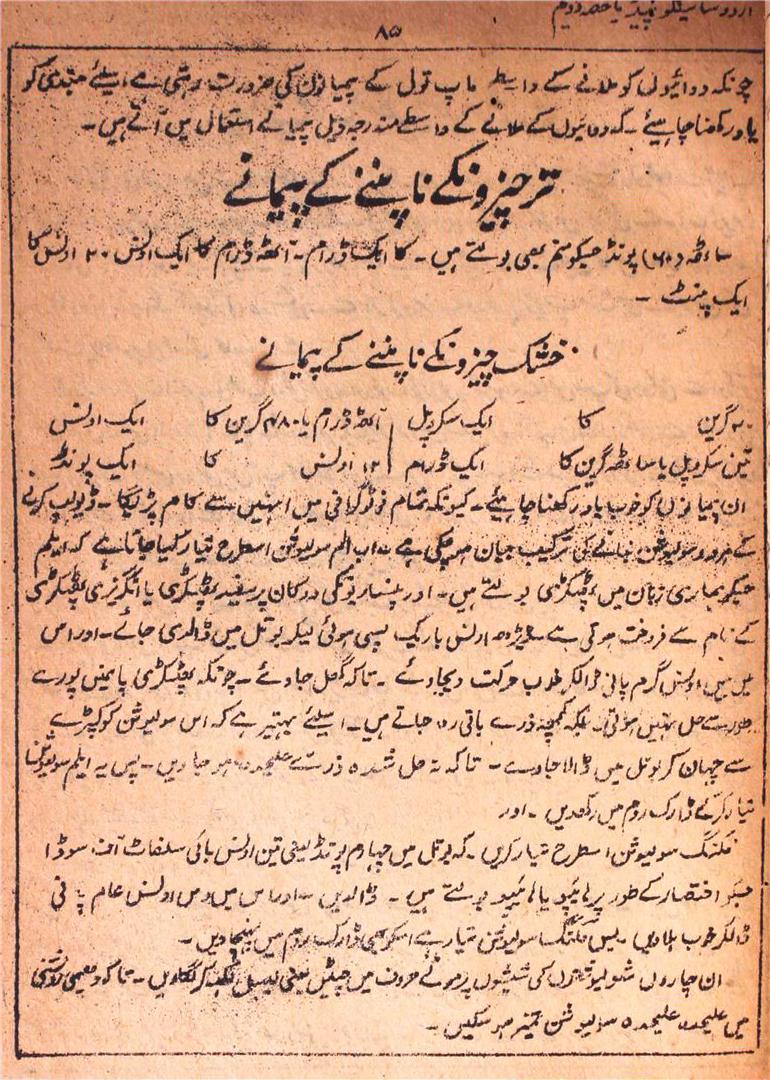 اردو سائیکلو پیڈیا حصہ دوم
۸۵
چونکہ دوائیوں کو ملانے کے واسطے ماپ تول کے پیمانوں کی ضرورت رہتی ہے اسلئے مبتدی کو
یاد رکھنا چاہیئے۔ کہ دوائیوں کے ملانے کے واسطے مندرجہ ذیل پیمانے استعمال میں آتے ہیں۔
تر چیزونکے ناپنے کے پیمانے
ساٹھ (۶۰) پونڈ جیکو منم بھی بولتے ہیں۔ کا ایک ڈرام۔ آٹھ ڈرام کا ایک اونس ۲۰ اونس کا
ایک پنٹ۔
خشک چیزونکے ناپنے کے پیمانے
۲۰ گرین کا ایک سکروپل آٹھ ڈرام یا ۴۸۰ گرین کا ایک اونس
تین سکروپل یا ساٹھ گرین کا ایک ڈرام ۱۲ اونس کا ایک پونڈ
ان پیمانوں کو خوب یاد رکھنا چاہیئے۔ کیونکہ تمام فوٹوگرافی میں انہیں سے کام پڑیگا۔ ڈیولپ کرنے
کے ہر دو سولیوشن بنانے کی ترکیب بیان ہو چکی ہے۔ اب الم سولیوشن اسطرح تیار کیا جاتا ہے کہ ایلم
جیکو ہماری زبان میں پھٹکڑی بولتے ہیں۔ اور پنساریونکی دوکان پر سفید پھٹکڑی یا انگریزی پھٹکڑی
کے نام سے فروخت ہوتی ہے ڈیڑھ اونس باریک پسی ہوئی لیکر بوتل میں ڈالدی جائے۔ اور اس
میں بیس اونس گرم پانی ڈالکر خوب حرکت دیجاوے۔ تاکہ گھل جاوے۔ چونکہ پھٹکڑی پانی میں پورے
طور سے حل نہیں ہوتی۔ بلکہ کچھ ذرے باقی رہ جاتے ہیں۔ اسلئے بہتر ہے کہ اس سولیوشن کو کپڑے
سے چھان کر بوتل میں ڈالا جاوے۔ تاکہ نہ حل شدہ ذرے علیحدہ ہو جاویں۔ پس یہ ایلم سولیوشن
تیار کر کے ڈارک روم میں رکھدیں۔ اور
فکسنگ سولیوشن اسطرح تیار کریں۔ کہ بوتل میں چہارم پونڈ یعنی تین اونس ہائی سلفاٹ آف سوڈا
جیکو اختصار کے طور پر ہائپو یا ہائیپو بولتے ہیں۔ ڈالدیں۔ اور اس میں دس اونس عام پانی
ڈالکر خوب ہلاویں۔ بس فکسنگ سولیوشن تیار ہے اسکو بھی ڈارک روم میں پہنچادیں۔
ان چاروں سولیوشنوں کی شیشیوں پر موٹے حروف میں چٹیں یعنی لیبل لکھ کر لگادیں۔ تاکہ دھیمی روشنی
میں علیحدہ علیحدہ سولیوشن تمیز ہو سکیں۔